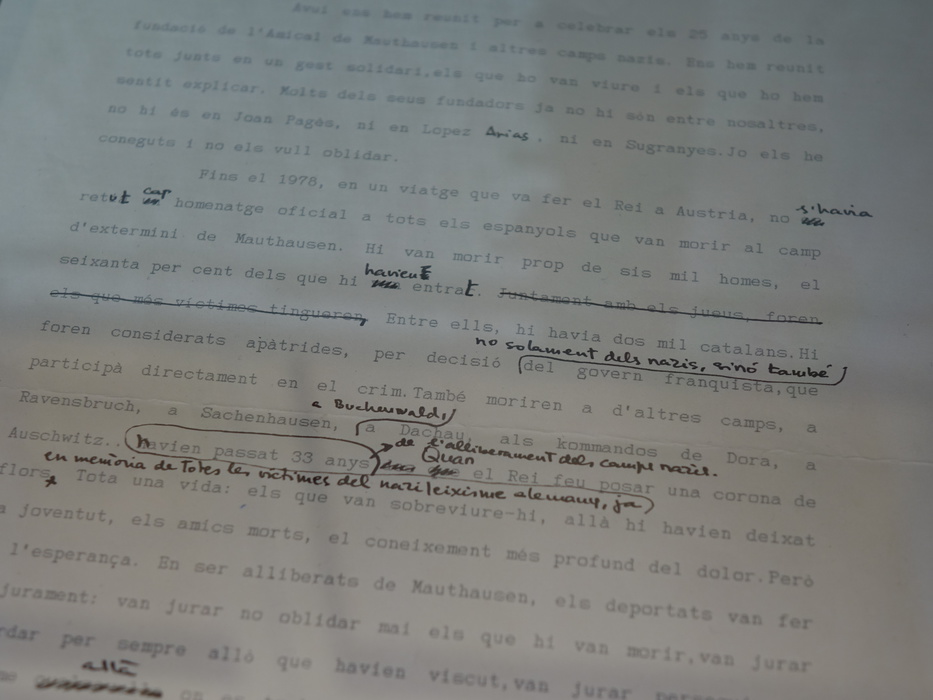 Avui ens hem reunit per a celebrar els 25 anys de la
fundació de l'Amical de Mauthausen i altres camps nazis. Ens hem reunit
tots junts en un gest solidari,els que ho van viure i els que ho hem
sentit explicar. Molts dels seus fundadors ja no hi són entre nosaltres,
no hi és en Joan Pagès, ni en Lopez Arias, ni en Sugranyes.Jo els he
coneguts i no els vull oblidar.
Fins el 1978, en un viatge que va fer el Rei a Austria, no s'havia
retut cap homenatge oficial a tots els espanyols que van morir al camp
d'extermini de Mauthausen. Hi van morir prop de sis mil homes, el
seixanta per cent dels que hi havient entrat. Juntament amb els jueus, foren
els que més víctimes tingueren, Entre ells, hi havia dos mil catalans.Hi
foren considerats apàtrides, per decisió no solament dels nazis, sinó també
del govern franquista,que
participà directament en el crim.També moriren a d'altres camps, a
Ravensbruch, a Sachenhausen, a Buchenwald, a Dachau, als kommandos de Dora, a
Auschwitz.. havien passat 33 anys de l'alliberament dels camps nazis.
Quan el Rei feu posar una corona de
flors en memòria de Totes les víctimes del nazifeixisme alemany, ja
Tota una vida: els que van sobreviure-hi, allà hi havien deixat
a joventut, els amics morts, el coneixement més profund del dolor.Però
l'esperança. En ser alliberats de Mauthausen, els deportats van fer
jurament: van jurar no oblidar mai els que hi van morir,van jurar
rdar per sempre allò que havien viscut,van jurar
allà
on